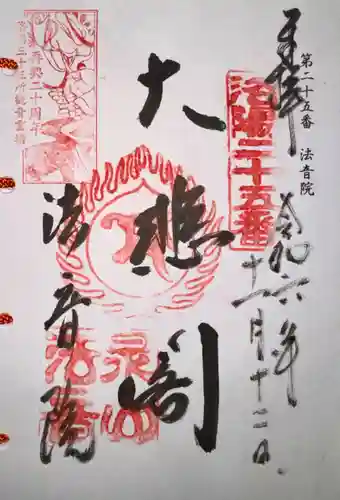 第二十五番 法音院
奉拝
令和六年
十一月十二日
洛陽二十五番
大悲閣
法音院
再興二十周年
洛陽三十三所観音霊場